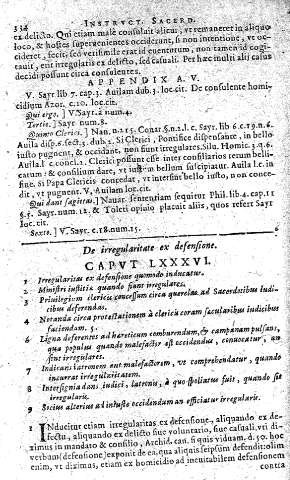 332 INSTRUCT. SACERD.
ex delicto. Qui etiam malè consuluit alicui, vt remaneret in aliquo
loco, & hostes superuenientes occiderunt, si non intentione, vt oc-
cideret, fecit, sed verisimile erat id euenturum, non tamen id cogi-
tauit, erit irregularis ex delicto, sed casuali. Per hæc multi alij casus
decidi possunt circa consulentes.
APPENDIX A. V.
V. Sayr lib 7. cap. 3. Auilam dub 3. loc. cit. De consulente homi-
cidium Azor. c. 10. loc. cit.
Qui ergo.] V. Sayr. 2 num. 4.
Tertio.] Sayr num. 8.
Quinto Clerici.] Nau. n. 215. Couar. §. n. 2. l. c. Sayr lib 6. c. 19. n. 6.
Auila disp. 6. sect. 3. dub 2. Si Clerici, Pontifice dispensante, in bello
iusto pugnent, & occidant, non sunt irregulares. Silu. Homic. 3. q. 6.
Auila l. c. concl. 1. Clerici possunt esse inter consiliarios retum belli-
catum: & consilium dare, vt iustum bellum suscipiatur. Auila l. c. in
fine. Si Papa Clericis concedat, vt intersint bello iusto, non conce-
dit, vt pugnent. V. Auilam loc. cit.
Qui dant sagittas.] Nauar. sententiam sequitur Phil. lib 4. cap. 11
§. 5. Sayr num. 12. & Toleti opinio placuit alijs, quos refert Sayr
loc. cit.
Sexto.] V. Sayr c. 18. num. 15.
De irregularitate ex defensione.
CAPVT LXXXVI.
1 Irregularitas ex defensione quomodo inducatur.
2 Ministri iustitiæ quando fiunt irregulares.
3 Priuilegium clericis concessum circa querelas ad Sacerdotibus iudi-
cibus deferendas.
5 Notanda circa protestationem à clericis coram sæcularibus iudicibus
faciendam. 5.
6 Ligna deferentes ad hæreticum comburendum, & campanam pulsans,
qua populus quando malefactor est occidendus, conuocatur, an
sint irregulares.
7 Indicans latronem aut malefactorem, vt comprehendatur, quando
incurrat irregularitatem.
8 Intersignia dans iudici, latronis, à quo spoliatus fuit, quando sit
irregularis.
9 Socius alterius ad iniusto occidendum an efficiatur irregularis.
1 INducitur etiam irregularitas ex defensione, aliquando ex de-
fectu, aliquando ex delicto siue voluntario, siue casuali, vti di-
ximus in mandato & consilio, Archid. cap. si quis viduam. d. 50. hoc
verbum (defensione) exponit de ea, qua aliquis seipsum defendit: olim
enim, vt diximus, etiam ex homicidio ad ineuitabilem defensionem
contra